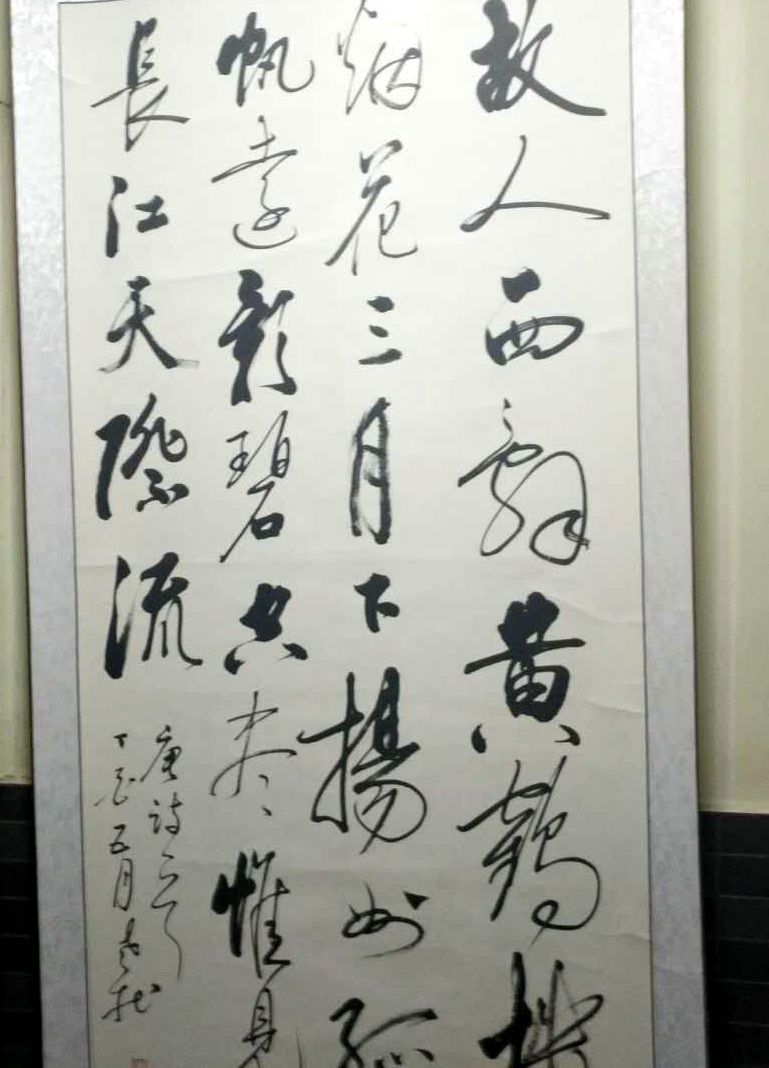 故人西辭黄鶴樓
烟花三月下揚州孤
帆遠影碧空尽惟見
長江天際流
唐詩
丁酉五月